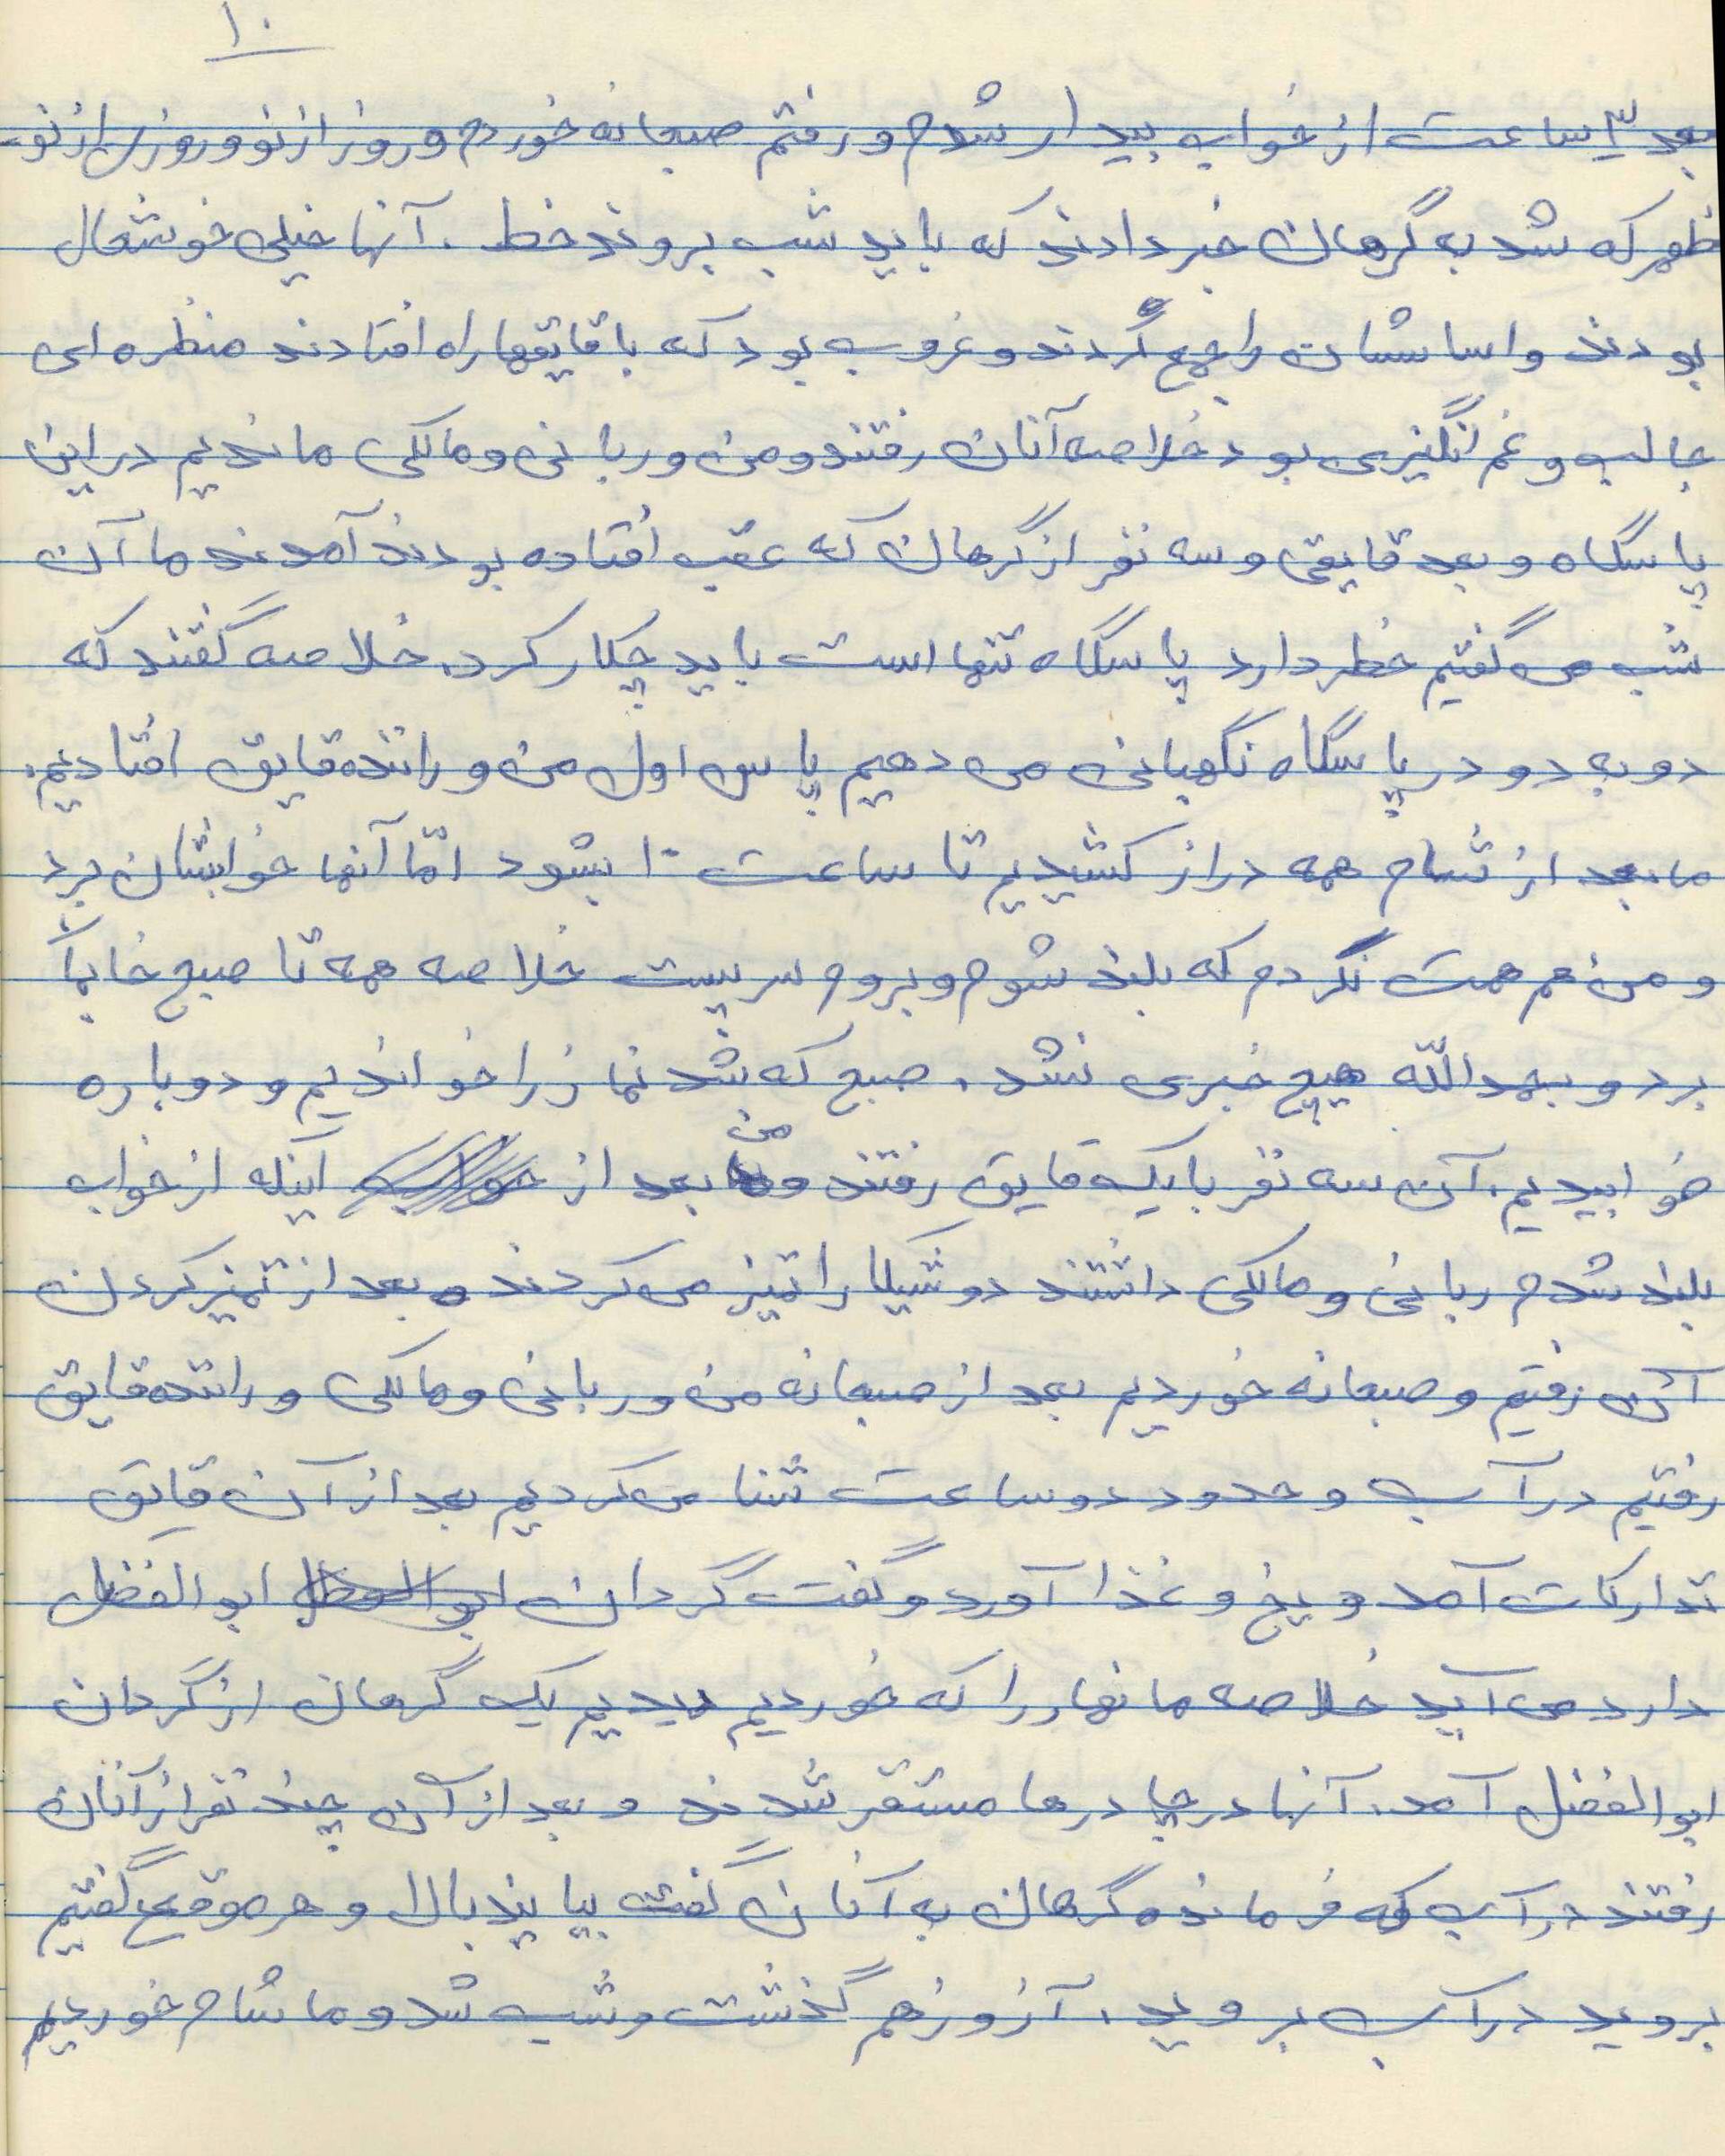 ۱۰
بعد ۳ ساعت از خواب بیدار شدم و رفتم صبحانه خوردم و روز از نو و روزی از نو.
ظهر که شد به گرهان خبر دادند که باید شب بروند خط . آنها خیلی خوشحال
بودند و اساسشان را جمع کردند و غروب بود که با قایقها راه افتادند منظره ای
جالب و غم انگیزی بود خلاصه آنان رفتند و من و ربانی و مالکی ماندیم در این
پاسگاه و بعد قایقی و سه نفر از گرهان که عقب افتاده بودند آمدند ما آن
شب می گفتیم خطر دارد پاسگاه تنها است باید چکار کرد. خلاصه گفتند که
دو به دو در پاسگاه نگهبانی می دهیم پاس اول من و راننده قایق افتادیم.
ما بعد از شام همه دراز کشیدیم تا ساعت ۱۰ بشود امّا آنها خوابشان برد
و من هم همت نکردم که بلند شوم و بروم سر پست خلاصه همه تا صبح خابمان
برد و بحمدالله هیچ خبری نشد . صبح که شد نماز را خواندیم و دوباره
خوابیدیم. آن سه نفر با یک قایق رفتند و من بعد از اینکه از خواب
بلند شدم ربانی و مالکی داشتند دوشیکا را تمیز می کردند و بعد از تمیز کردن
آن رفتیم و صبحانه خوردیم بعد از صبحانه من و ربانی و مالکی و راننده قایق
رفتیم در آب و حدود دو ساعت شنا می کردیم بعد از آن قایق
تدارکات آمد و یخ و غذا آورد و گفت گردان ابوالفضل
دارد می آید خلاصه ما نهار را که خوردیم دیدیم یک گرهان از گردان
ابوالفضل آمد. آنها در چادرها مستقر شدند و بعد از آن چند نفر از آنان
رفتند در آب که فرمانده گرهان به آنان گفت بیایند بالا و هر موقع گفتیم
بروید در آب بروید . آنروز هم گذشت و شب شد و ما شام خوردیم